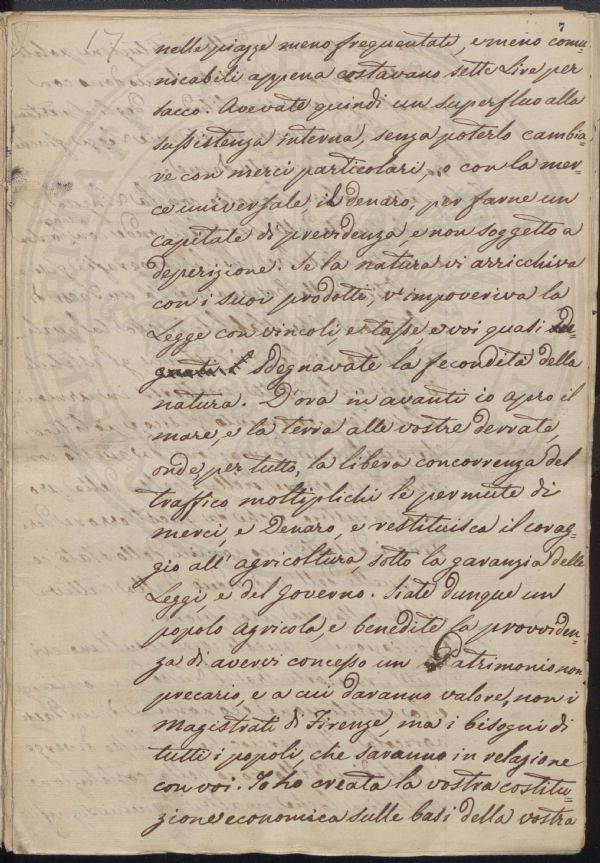 7
17
nelle piazze meno frequentate, e meno comu=
nicabili appena costavano sette Lire per
sacco. Avevate quindi un superfluo alla
sussistenza interna, senza poterlo cambia=
re con merci particolari, o con la mer=
ce universale il denaro, per farne un
capitale di previdenza, e non soggetto a
deperizione. Se la natura vi arricchiva
con i suoi prodotti, v'impoveriva la
Legge con vincoli, e tasse e voi quasi
sdegnavate la fecondità della
natura. D'ora in avanti io apro il
mare, e la terra alle vostre derrate,
onde, per tutto, la libera concorrenza del
traffico moltiplichi le permute di
merci, e Denaro, e restituisca il corag=
gio all'agricoltura, sotto la garanzia delle
Leggi, e del Governo. Siate dunque un
popolo agricola, e benedite la provviden=
za di avervi concesso un Patrimonio non
precario, e a cui daranno valore, non i
Magistrati di Firenze, ma i bisogni di
tutti i popoli, che saranno in relazione
con voi. Io ho creata la vostra costitu=
zione economica sulle basi della vostra